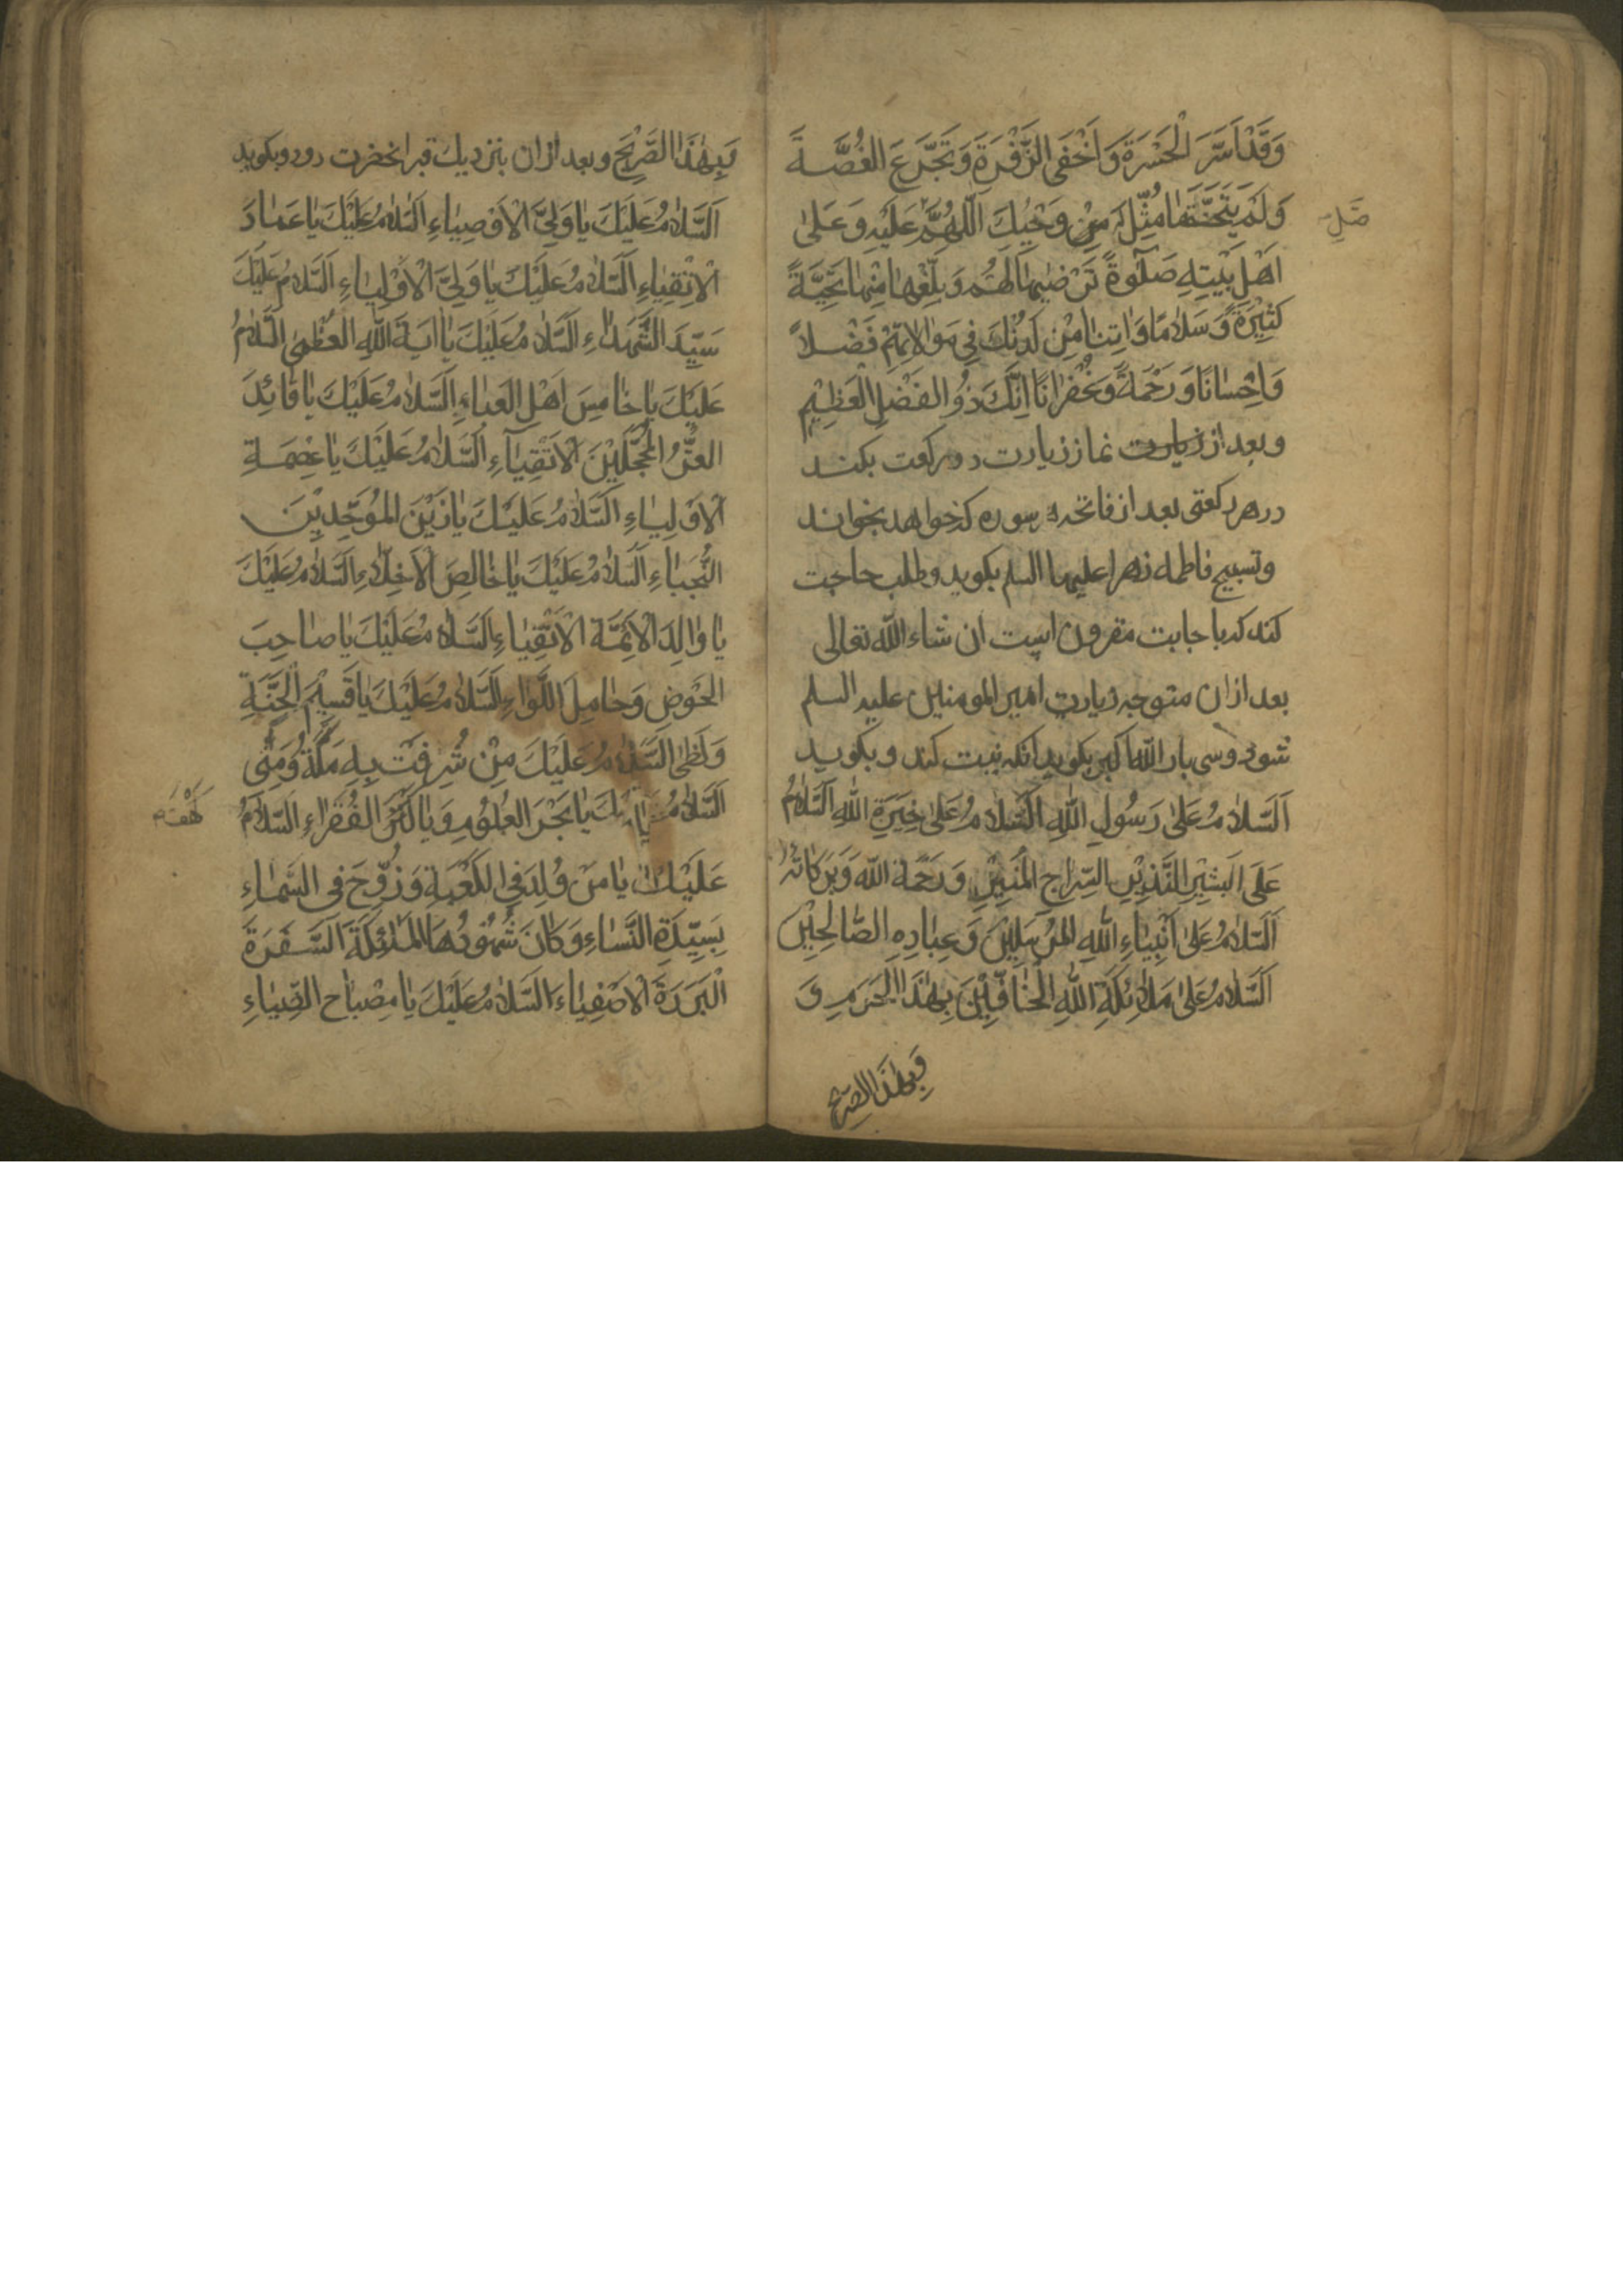 وَقَدْ اَسَرَّ الْحَسْرَةَ وَاَخْفَى الزَّفْرَةَ وَتَجَرَّعَ الْغُصَّةَ
وَلَمْ يَتَخَطَّ مَا مُثِّلَ لَهُ مِنْ وَحْيِكَ اَللّٰهُمَّ عَلَيْهِ وَعَلىٰ
صَلِّ
اَهْلِ بَيْتِهِ صَلٰوةً تَرْضٰيهَا لَهُمْ وَبَلِّغْهَا مِنَّا تَحِيَّةً
كَثِيْرَةً وَسَلَامًا وَاٰتِنَا مِنْ لَدُنْكَ فِي مَوَالَاتِهِمْ فَضْلًا
وَاِحْسَانًا وَرَحْمَةً وَغُفْرَانًا اِنَّكَ ذُو الْفَضْلِ الْعَظِيْمِ
وبعد از زیارت نماز زیارت دو رکعت بکند
در هر رکعتی بعد از فاتحه هر سوره که خواهد بخواند
وتسبیح فاطمه زهرا علیها السلم بکوید وطلب حاجت
کند که باجابت مقرون است ان شاء الله تعالی
بعد ازان متوجه زیارت امیر المومنین علیه السلم
شود وسی بار الله اکبر بکوید انکه نیت کند و بکوید
اَلسَّلَامُ عَلىٰ رَسُولِ اللهِ اَلسَّلَامُ عَلىٰ خِيَرَةِ اللهِ اَلسَّلَامُ
عَلَى الْبَشِيْرِ النَّذِيْرِ السِّرَاجِ الْمُنِيْرِ وَرَحْمَةُ اللهِ وَبَرَكَاتُهُ
اَلسَّلَامُ عَلىٰ اَنْبِيَاءِ اللهِ الْمُرْسَلِيْنَ وَعِبَادِهِ الصَّالِحِيْنَ
اَلسَّلَامُ عَلىٰ مَلَائِكَةِ اللهِ الْحَافِّيْنَ بِهٰذَا الْحَرَمِ وَ
وَبِهٰذَا الضَّرِيْحِ
وَبِهٰذَا الضَّرِيْحِ وبعد ازان بنزدیك قبر انحضرت رود وبکوید
اَلسَّلَامُ عَلَيْكَ يَا وَلِيَّ الْاَوْصِيَاءِ اَلسَّلَامُ عَلَيْكَ يَا عِمَادَ
الْاَتْقِيَاءِ اَلسَّلَامُ عَلَيْكَ يَا وَلِيَّ الْاَوْلِيَاءِ اَلسَّلَامُ عَلَيْكَ
سَيِّدَ الشُّهَدَاءِ اَلسَّلَامُ عَلَيْكَ يَا اٰيَةَ اللهِ الْعُظْمىٰ اَلسَّلَامُ
عَلَيْكَ يَا خَامِسَ اَهْلِ الْعَبَاءِ اَلسَّلَامُ عَلَيْكَ يَا قَائِدَ
الْغُرِّ الْمُحَجَّلِيْنَ الْاَتْقِيَاءِ اَلسَّلَامُ عَلَيْكَ يَا عِصْمَةَ
الْاَوْلِيَاءِ اَلسَّلَامُ عَلَيْكَ يَا زَيْنَ الْمُوَحِّدِيْنَ
النُّجَبَاءِ اَلسَّلَامُ عَلَيْكَ يَا خَالِصَ الْاَخِلَّاءِ اَلسَّلَامُ عَلَيْكَ
يَا وَالِدَ الْاَئِمَّةِ الْاَتْقِيَاءِ اَلسَّلَامُ عَلَيْكَ يَا صَاحِبَ
الْحَوْضِ وَحَامِلَ اللِّوَاءِ اَلسَّلَامُ عَلَيْكَ يَا قَسِيْمَ الْجَنَّةِ
وَلَظىٰ اَلسَّلَامُ عَلَيْكَ مِنْ شُرِفَتْ بِهِ مَكَّةُ وَمِنٰى
اَلسَّلَامُ يَا بَحْرَ الْعُلُوْمِ وَيَا كَنْزَ الْفُقَرَاءِ اَلسَّلَامُ
عَلَيْكَ يَا مَنْ وُلِدَ فِي الْكَعْبَةِ وَزُوِّجَ فِي السَّمَاءِ
بِسَيِّدَةِ النِّسَاءِ وَكَانَ شُهُوْدُهَا الْمَلٰئِكَةَ السَّفَرَةَ
الْبَرَرَةَ الْاَصْفِيَاءَ اَلسَّلَامُ عَلَيْكَ يَا مِصْبَاحَ الضِّيَاءِ